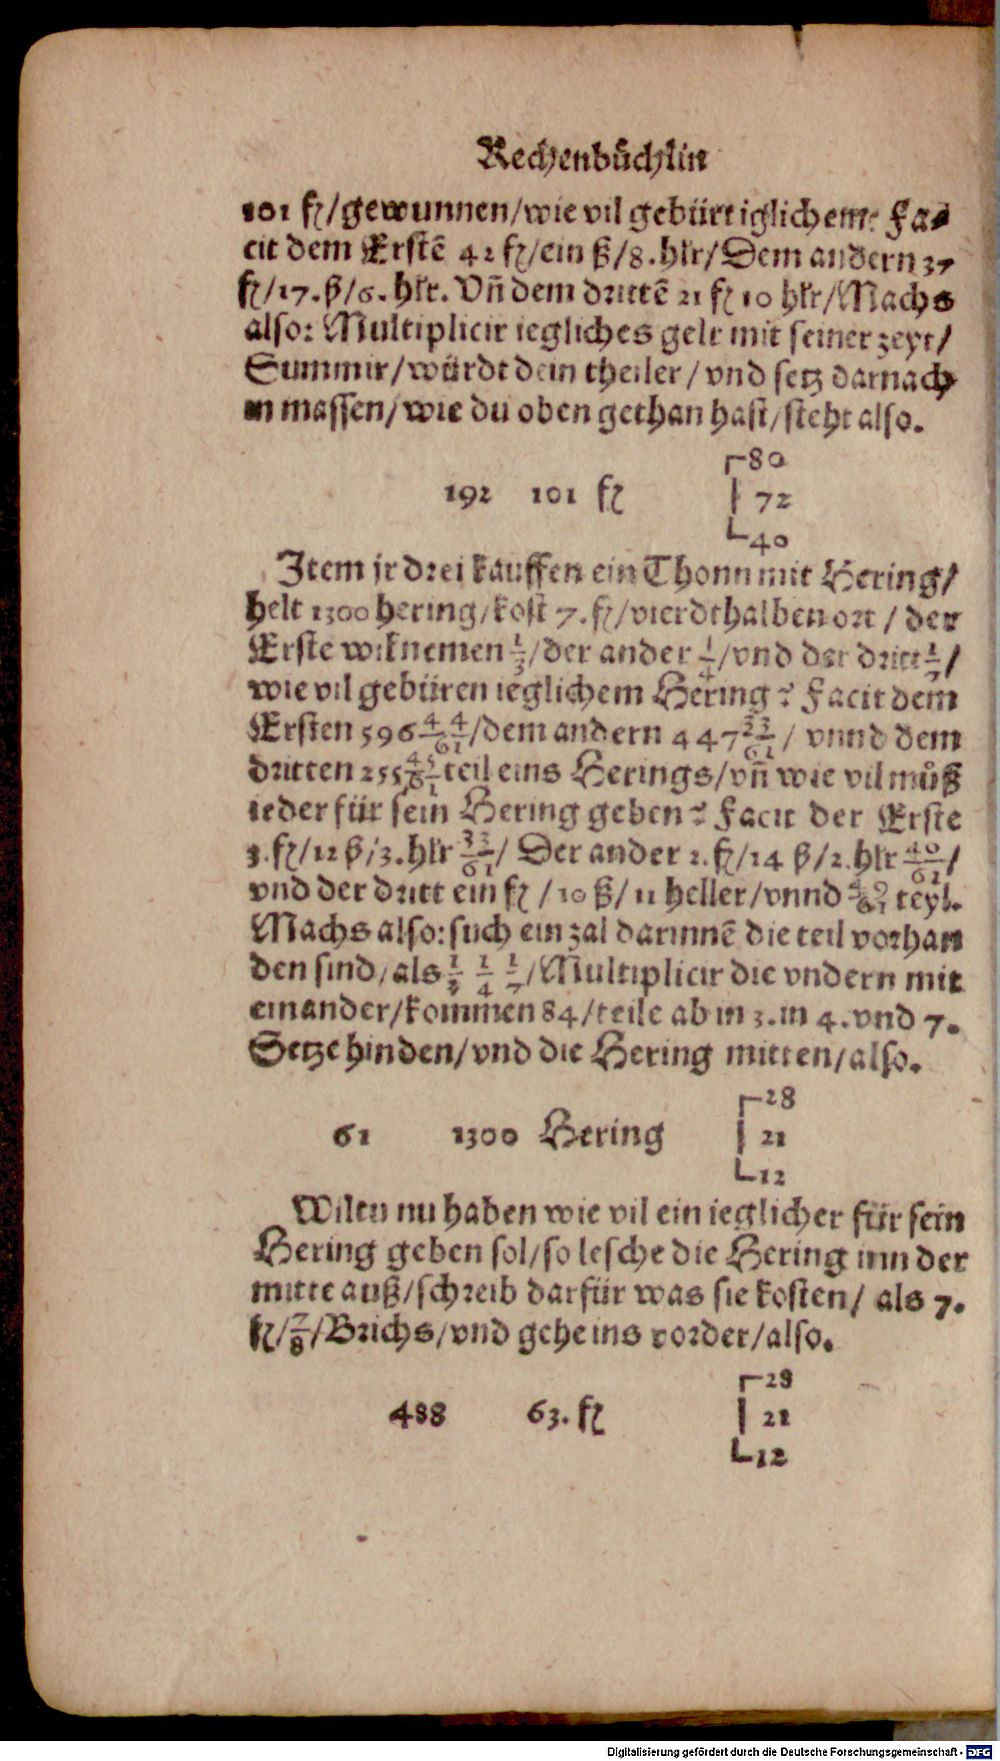 Rechenbůchlin
101 fl/gewunnen/wie vil gebürt iglichem? Fa⸗
cit dem Erstē 42 fl/ein ß/8.hlr/Dem andern 37
fl/17.ß/6.hlr. Vñ dem drittē 21 fl 10 hlr/Machs
also: Multiplicir iegliches gelt mit seiner zeyt/
Summir/würdt dein theiler/vnd setz darnach
in massen/wie du oben gethan hast/steht also.
80
192 101 fl 72
40
Item jr drei kauffen ein Thonn mit Hering/
helt 1300 hering/kost 7.fl/vierdthalben ort/der
Erste wil nemen 1/3/der ander 1/4/vnd der dritt 1/7/
wie vil gebüren ieglichem Hering? Facit dem
Ersten 596 44/61/dem andern 447 33/61/ vnnd dem
dritten 255 45/61 teil eins Herings/vñ wie vil můß
ieder für sein Hering geben? Facit der Erste
3.fl/12 ß/3.hlr 33/61/ Der ander 2.fl/14 ß/2.hlr 40/61/
vnd der dritt ein fl/10 ß/11 heller/vnnd 49/61 teyl.
Machs also: such ein zal darinnē die teil vorhan
den sind/als 1/3 1/4 1/7/Multiplicir die vndern mit
einander/kommen 84/teile ab in 3.in 4.vnd 7.
Setze hinden/vnd die Hering mitten/also.
28
61 1300 Hering 21
12
Wiltu nu haben wie vil ein ieglicher für sein
Hering geben sol/so lesche die Hering inn der
mitte auß/schreib darfür was sie kosten/ als 7.
fl/7/8/Brichs/vnd gehe ins vorder/also.
28
488 63.fl 21
12
Digitalisierung gefördert durch die Deutsche Forschungsgemeinschaft - DFG